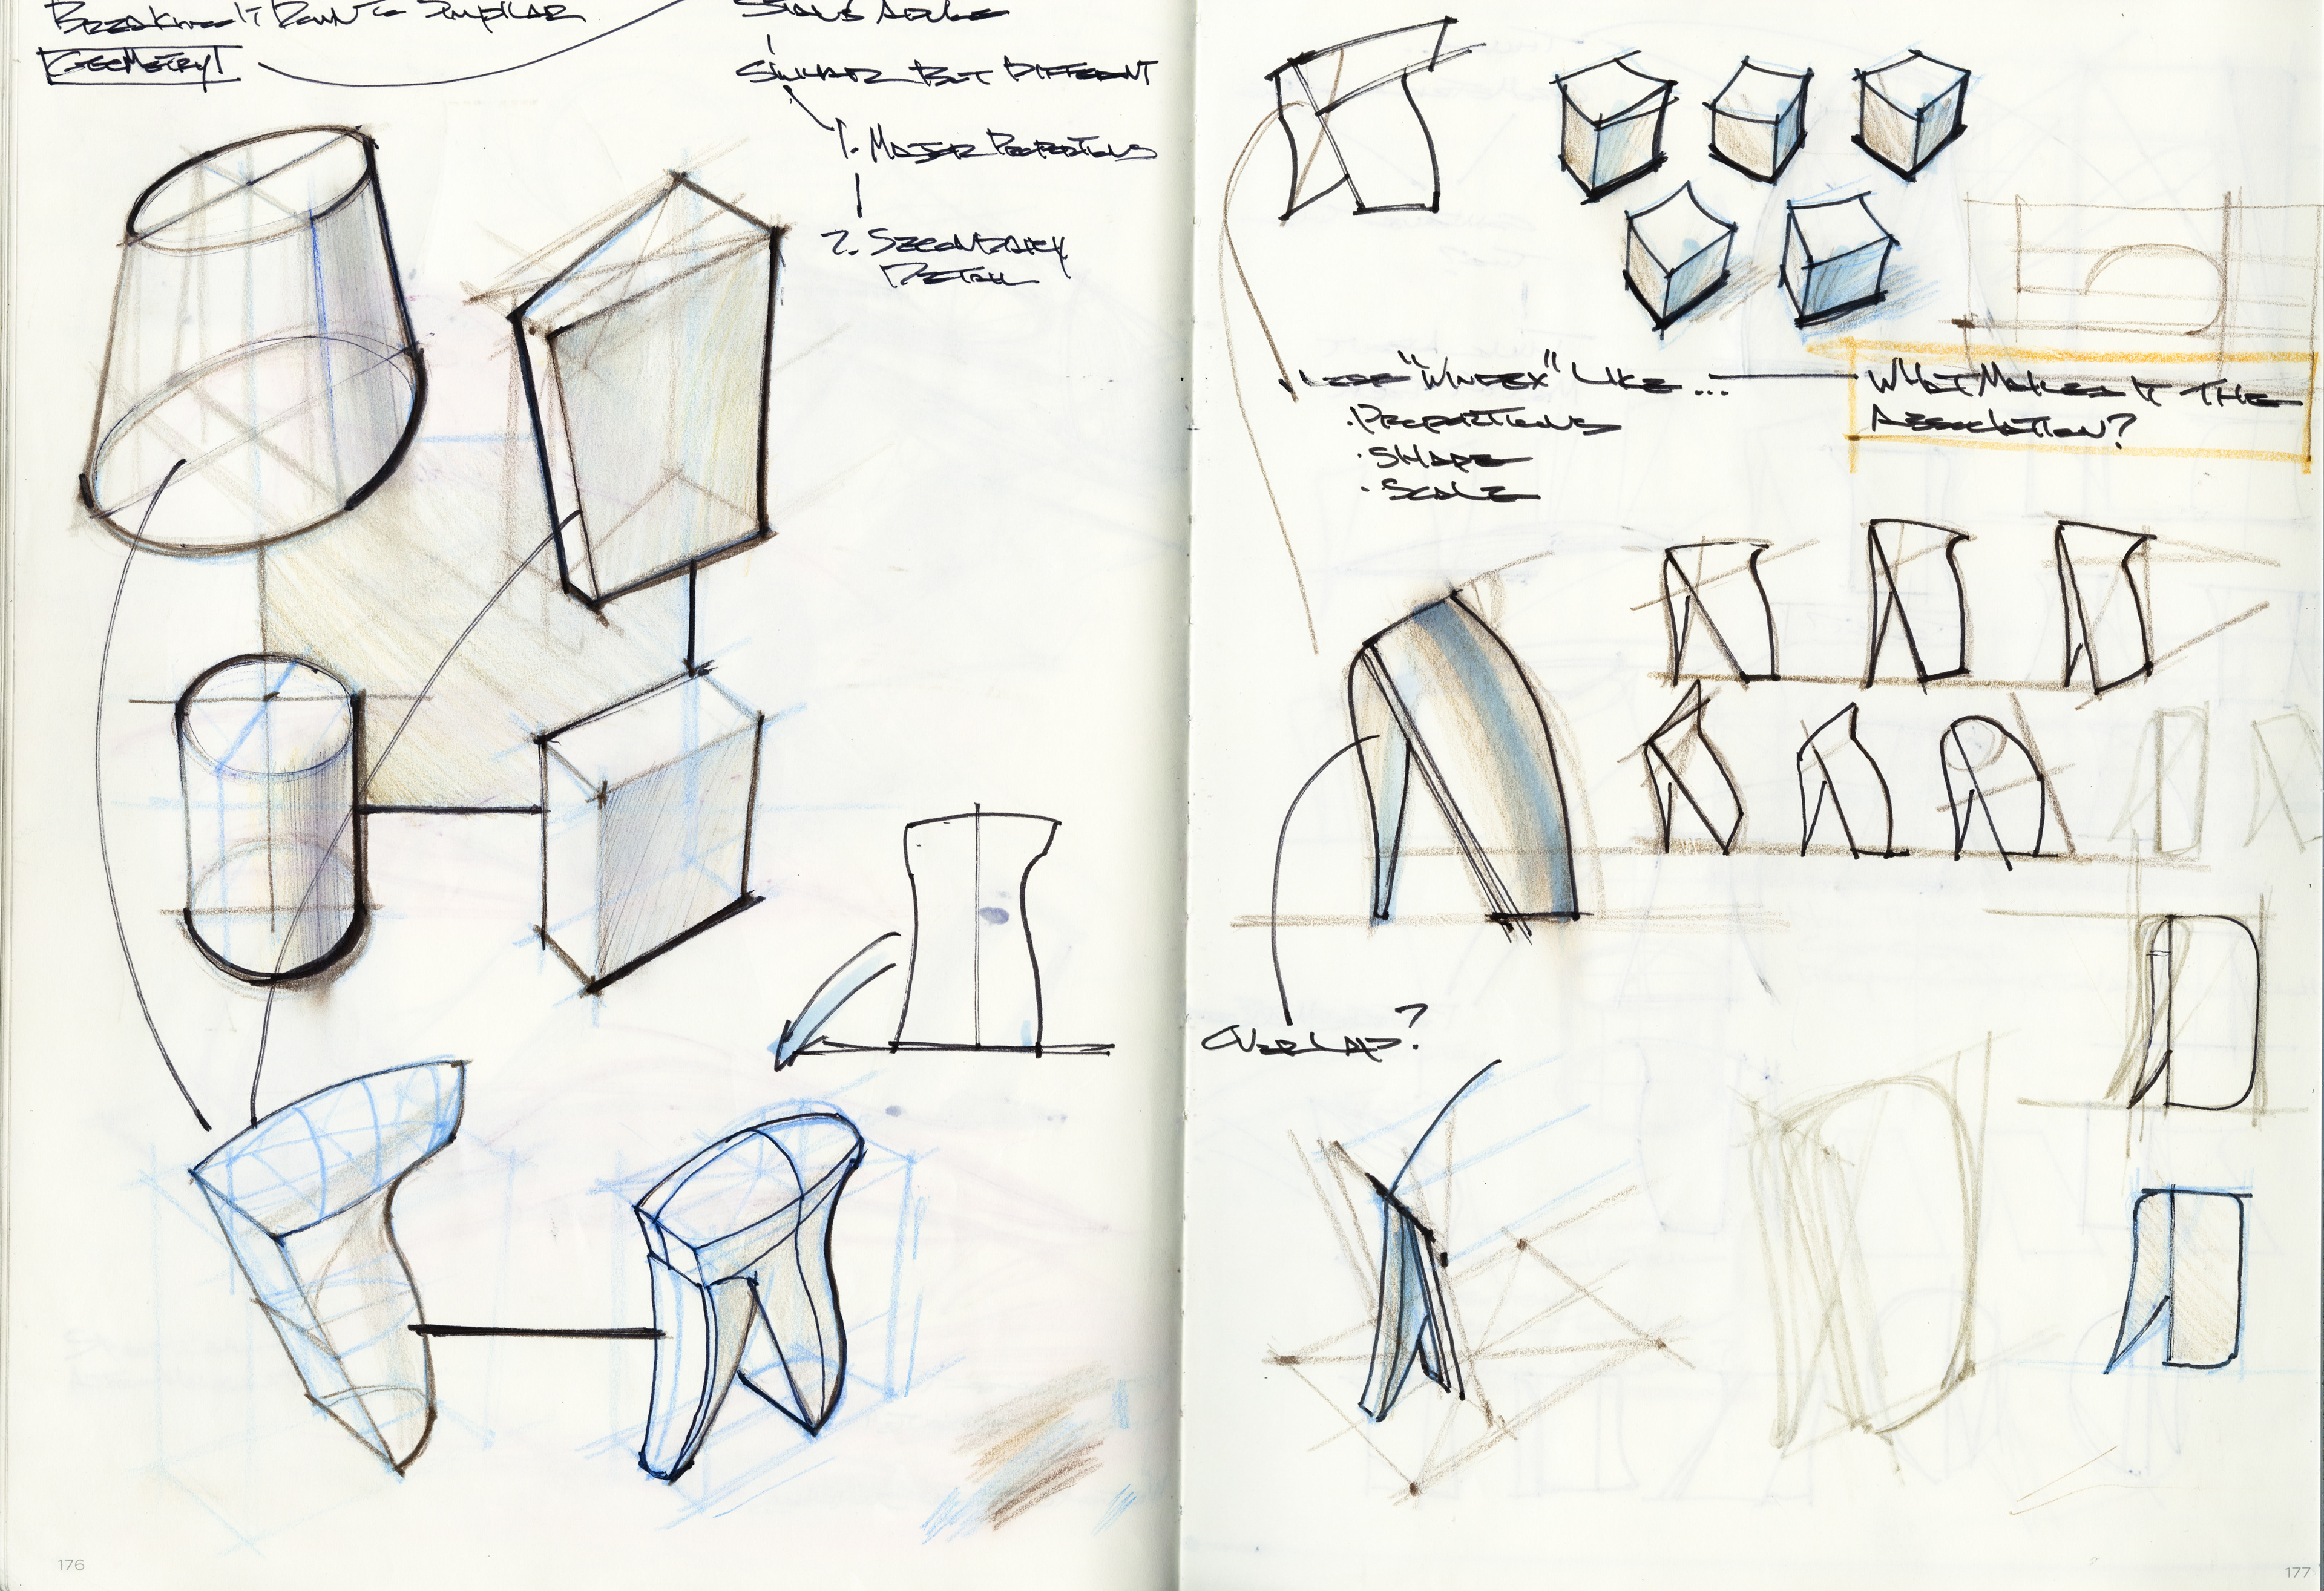 GEOMETRY!
SIMILAR BUT DIFFERENT
1. MAJOR PROPORTIONS
2. SECONDARY
DETAIL
LESS "WINDEX" LIKE ...
• PROPORTIONS
• SHAPE
• SCALE
WHAT MAKES IT THE
ASSOCIATION?
OVERLAP?
176
177